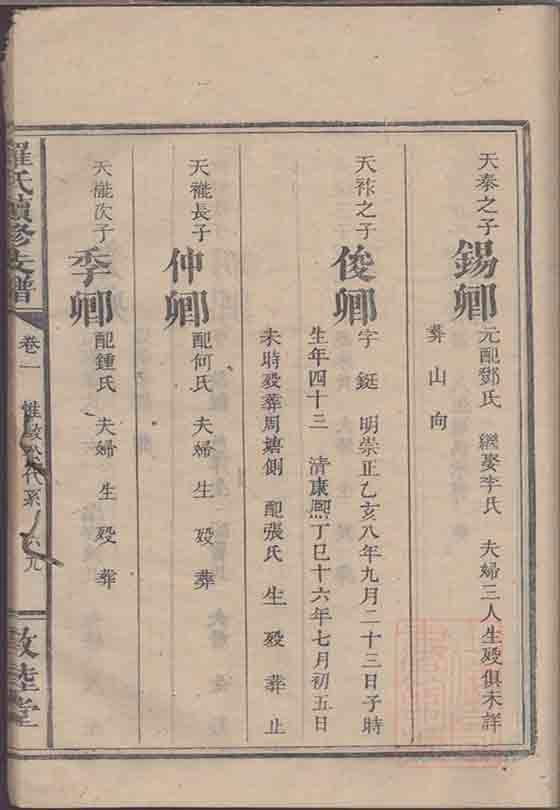 天泰之子
錫卿
元配鄧氏 繼娶李氏 夫婦三人生殁俱未詳
葬山向
天祚之子
俊卿
字鋌 明崇正乙亥八年九月二十三日子時
生年四十三 清康熙丁巳十六年七月初五日
未時殁葬周塘側 配張氏 生殁葬止
天𥜥長子
仲卿
配何氏 夫婦生殁葬
次子
季卿
配鍾氏 夫婦生殁葬
羅氏續修支譜
卷一
惟 代系
六九
敦睦堂